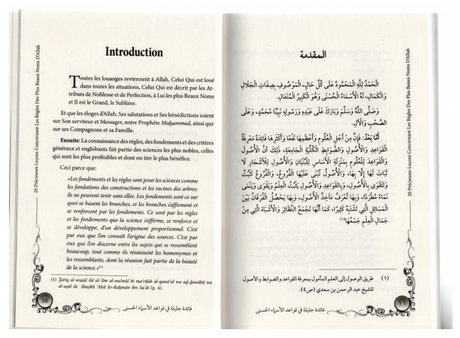 Introduction
Toutes les louanges reviennent à Allah, Celui Qui est loué
dans toutes les situations, Celui Qui est décrit par les At-
tributs de Noblesse et de Perfection, à Lui les plus Beaux Noms et
Il est le Grand, le Sublime.
Et que les éloges d'Allah, Ses salutations et Ses bénédictions soient
sur Son serviteur et Messager, notre Prophète Muḥammad, ainsi que
sur ses Compagnons et sa Famille.
Ensuite: La connaissance des règles, des fondements et des critères
généraux et englobants fait partie des sciences les plus nobles, celles
qui sont les plus profitables et dont on tire le plus bénéfice.
Ceci parce que:
«Les fondements et les règles sont pour les sciences comme
les fondations des constructions et les racines des arbres:
ils ne peuvent tenir sans elles. Les fondements sont ce sur
quoi se basent les branches, et les branches s'affirment et
se renforcent par les fondements. Ce sont par les règles
et les fondements que la science s'affirme, se renforce et
se développe, d'un développement proportionnel. C'est
par eux que l'on connaît l'origine des sources. C'est par
eux que l'on discerne entre les sujets qui se ressemblent
beaucoup, tout comme ils réunissent les homonymes et
les ressemblants, dont la réunion fait partie de la beauté
de la science.»(1)
20 Précieuses Leçons Concernant Les Règles Des Plus Beaux Noms D'Allah
المقدمة
الْحَمْدُ لِلَّهِ الْمَحْمُودِ عَلَى كُلِّ حَالٍ، الْمَوْصُوفِ بِصِفَاتِ الْجَلَالِ
وَالْكَمَالِ، لَهُ الْأَسْمَاءُ الْحُسْنَى وَهُوَ الْكَبِيرُ الْمُتَعَالِ.
وَصَلَّى اللَّهُ وَسَلَّمَ وَبَارَكَ عَلَى عَبْدِهِ وَرَسُولِهِ نَبِيِّنَا مُحَمَّدٍ
وَعَلَى آلِهِ وَصَحْبِهِ.
أَمَّا بَعْدُ: فَإِنَّ مِنْ أَجَلِّ الْعُلُومِ وَأَعْظَمِهَا نَفْعًا وَأَكْثَرِهَا فَائِدَةً مَعْرِفَةَ
الْقَوَاعِدِ وَالْأُصُولِ وَالضَّوَابِطِ الْكُلِّيَّةِ الْجَامِعَةِ، ذَلِكَ أَنَّ الْأُصُولَ
وَالْقَوَاعِدَ لِلْعُلُومِ بِمَنْزِلَةِ الْأَسَاسِ لِلْبُنْيَانِ وَالْأُصُولِ لِلْأَشْجَارِ لَا
ثَبَاتَ لَهَا إِلَّا بِهَا، وَالْأُصُولُ تُبْنَى عَلَيْهَا الْفُرُوعُ، وَالْفُرُوعُ تَثْبُتُ
وَتَتَقَوَّى بِالْأُصُولِ، وَبِالْقَوَاعِدِ وَالْأُصُولِ يَثْبُتُ الْعِلْمُ وَيَقْوَى وَيَنْمَى
نَمَاءً مُطَّرِدًا، وَبِهَا تُعْرَفُ مَآخِذُ الْأُصُولِ، وَبِهَا يَحْصُلُ الْفُرْقَانُ بَيْنَ
الْمَسَائِلِ الَّتِي تَشْتَبِهُ كَثِيرًا، كَمَا أَنَّهَا تَجْمَعُ النَّظَائِرَ وَالْأَشْبَاهَ الَّتِي مِنْ
جَمَالِ الْعِلْمِ جَمْعُهَا(١)
(١) طريق الوصول إلى العلم المأمول بمعرفة القواعد والضوابط والأصول
للشيخ عبد الرحمن بن سعدي (ص٤).
فائدة جليلة في قواعد الأسماء الحسنى
20 Précieuses Leçons Concernant Les Règles Des Plus Beaux Noms D'Allah
فائدة جليلة في قواعد الأسماء الحسنى